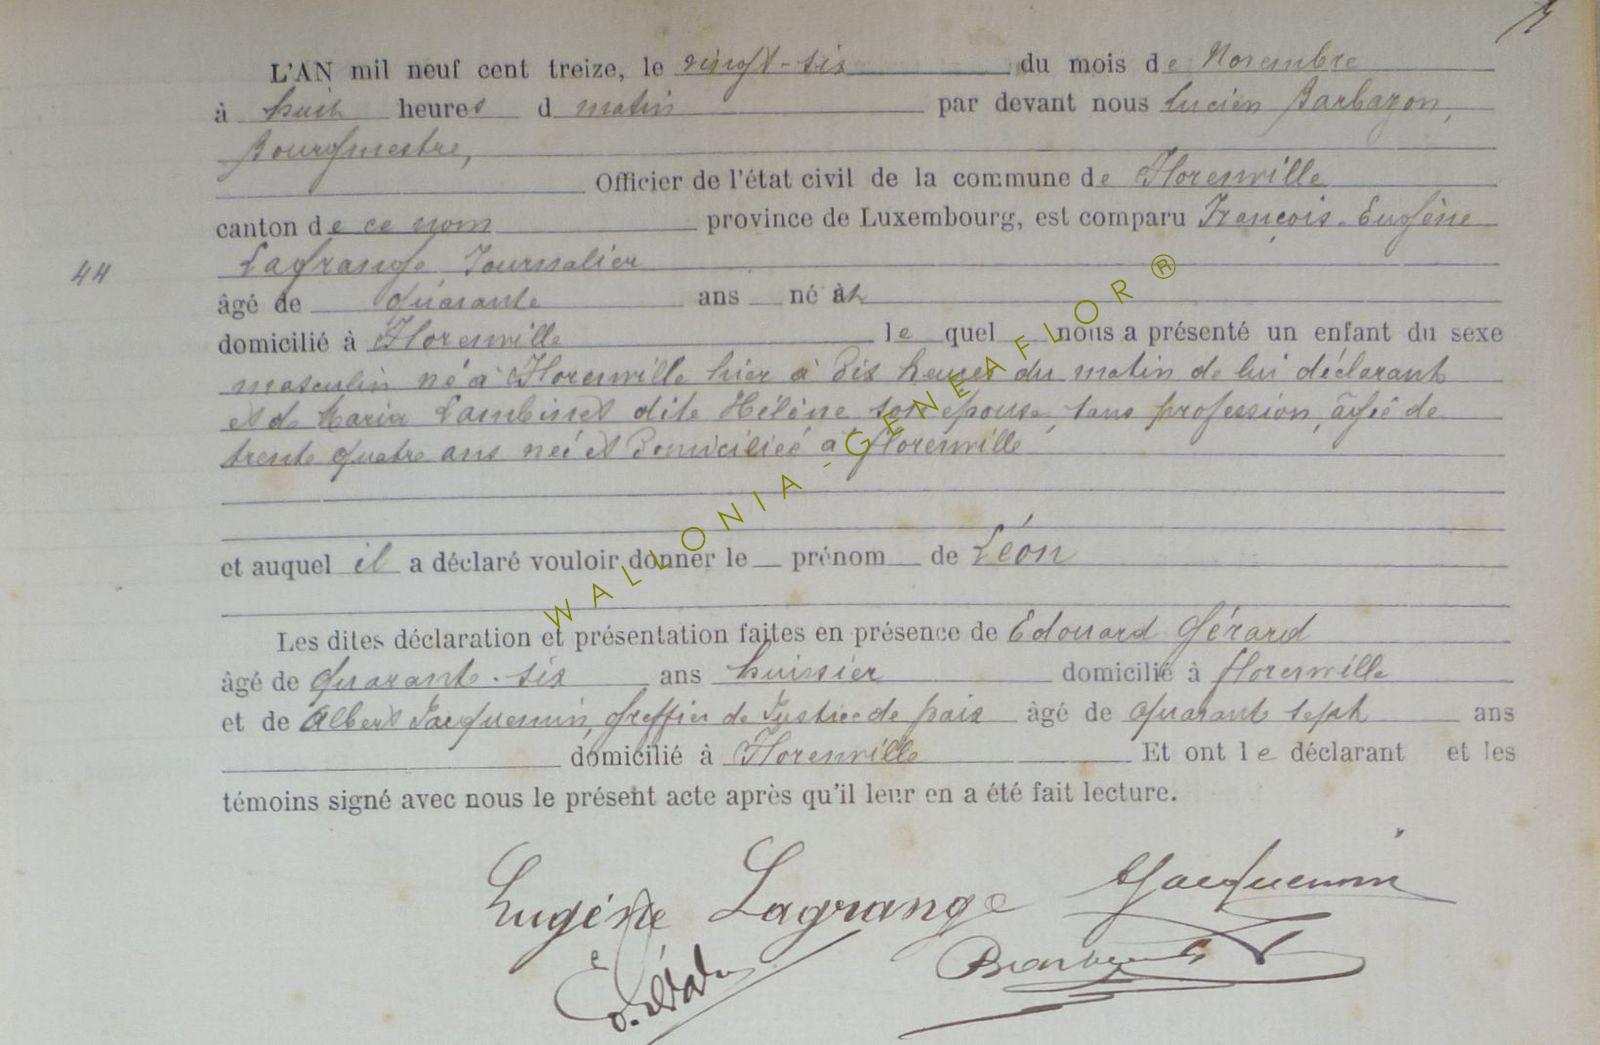 L'AN mil neuf cent treize, le vingt-six du mois de Novembre
à huit heures d matin par devant nous Lucien Barbazon,
Bourgmestre,
Officier de l'état civil de la commune de Florenville
canton de ce nom province de Luxembourg, est comparu François-Eugène
Lagrange Journalier
44
âgé de quarante ans né à et
domicilié à Florenville le quel nous a présenté un enfant du sexe
masculin né à Florenville hier à dix heures du matin de lui déclarant
et de Maria Lambinet dite Hélène son épouse, sans profession, âgée de
trente quatre ans née et domiciliée à Florenville
et auquel il a déclaré vouloir donner le prénom de Léon
Les dites déclaration et présentation faites en présence de Edouard Gérard
âgé de quarante-six ans huissier domicilié à Florenville
et de Albert Jacquemin, greffier de Justice de paix âgé de quarante sept ans
domicilié à Florenville Et ont le déclarant et les
témoins signé avec nous le présent acte après qu'il leur en a été fait lecture.
Eugéne Lagrange AJacquemin
WALLONIA-GENEAFLOR®